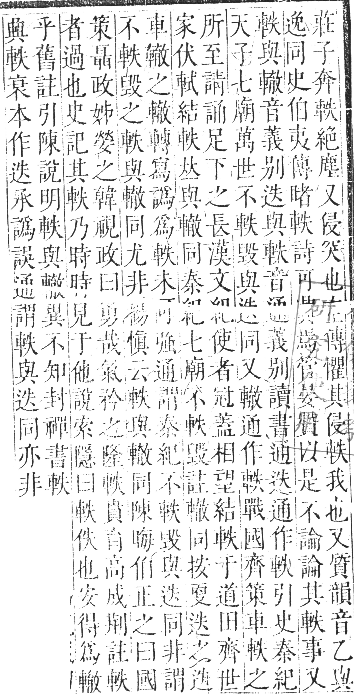 莊子奔軼絕塵又侵突也左傳懼其侵軼我也又質韻音乙與
逸同史伯夷傳睹軼詩可異焉管晏贊以是不論論其軼事又
軼與轍音義别迭與軼音通義别讀書通迭通作軼引史秦紀
天子七廟萬世不軼毀與迭同又轍通作軼戰國齊策車軼之
所至請誦足下之長漢文紀使者冠蓋相望結軼于道田齊世
家伏軾結軼𠀤與轍同秦紀七廟不軼毀註轍同按更迭之迭
車轍之轍轉寫譌爲軼未可強通謂秦紀不軼毀與迭同非謂
不軼毀之軼與轍同尤非楊愼云軼與轍同陳晦伯正之曰國
策聶政姊嫈之韓視政曰勇哉氣矜之隆軼賁育高成荆註軼
者過也史記其軼乃時時見于他說索隱曰軼佚也安得爲轍
乎舊註引陳說明軼與轍異不知封禪書軼
典軼衰本作迭承譌誤通謂軼與迭同亦非